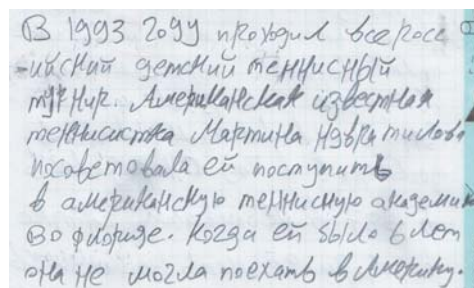 В 1993 году проходил всеросс
-ийский детский теннисный
турнир. Американская известная
теннисистка Мартина Навратилова
посоветовала ей поступить
в американскую теннисную академию
во флориде. Когда ей было 6 лет
она не могла поехать в Америку.